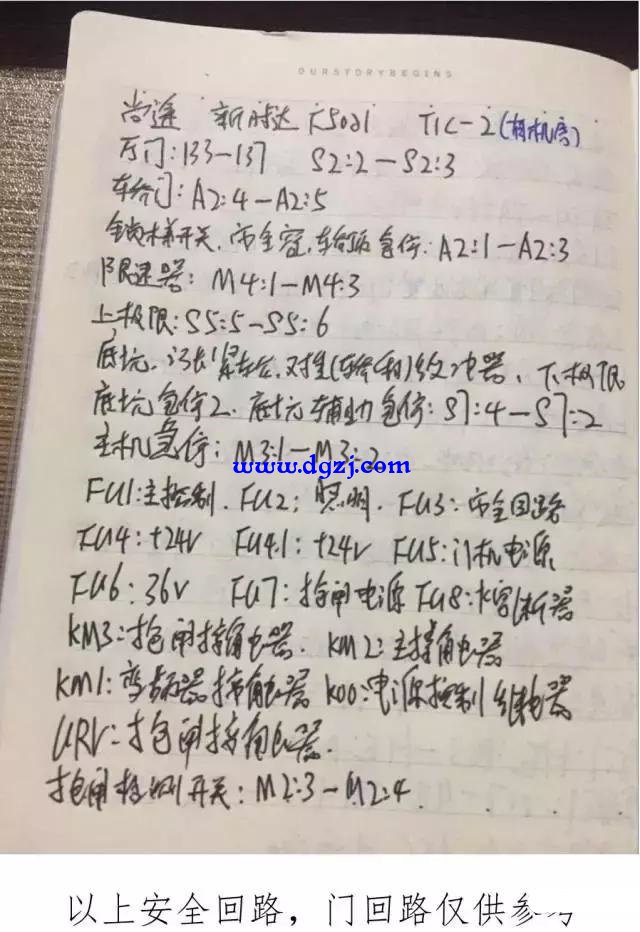 OURSTORYBEGINS
尚途 新时达 F5021 TIC-2(有机房)
厅门:133-137 S2:2-S2:3
轿门:A2:4-A2:5
安全窗、轿顶急停:A2:1-A2:3
限速器:M4:1-M4:3
上极限:S5:5-S5:6
底坑、涨紧轮、对重(轿厢)缓冲器、下极限
底坑急停2、底坑辅助急停:S7:4-S7:2
主机急停:M3:1-M3:2
www.dgzj.com
FU1:主控制、FU2:照明、FU3:安全回路
FU4:+24V FU4.1:+24V FU5:门机电源
FU6:36V FU7:抱闸电源 FU8:断器
KM3:抱闸接触器、KM2:主接触器
KM1:变频器接触器 K00:电源控制继电器
URV:抱闸接触器.
抱闸检测开关:M2:3-M2:4
以上安全回路，门回路仅供参